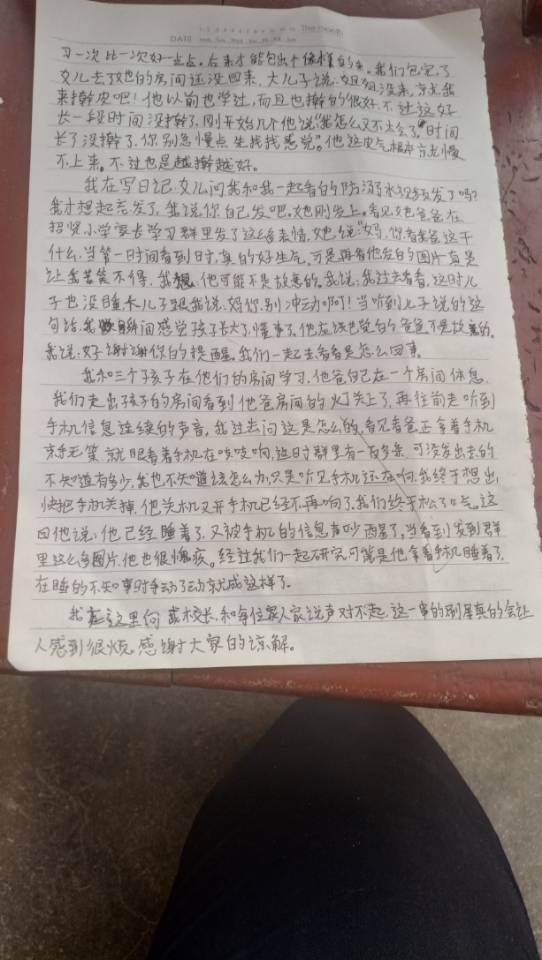 DATE
习一次比一次好一点点。后来才能包出个像样的来。我们包完了
女儿去了她的房间还没回来，大儿子说：姐姐没来，让我
来擀皮吧！他以前也学过，而且也擀的很好，不过这好
长一段时间没擀了，刚开始几个他说"我怎么又不太会了"时间
长了没擀了，你别急慢点 先找找感觉"。他这电气根本就慢
不上来。不过也是越擀越好。
我在写日记，女儿问我和我一起看的防溺水视频发了吗？
我才想起忘发了，我说你自己发吧。她刚发上。看见她爸爸在
招贤小学家长学习群里发了这么多表情，她说："妈，你看我爸这干
什么，当第一时间看到时，真的好生气，可是再看他发的图片真是
让我苦笑不得，我想，他可能不是故意的，我说，我过去看看，这时儿
子也没睡，大儿子跟我说，妈你别冲动啊！当听到儿子说的这
句话，我瞬间感觉孩子长大了，懂事了，他应该也觉的爸爸不是故意的。
我说，好谢谢你的提醒。我们一起去看看是怎么回事。
我和三个孩子在他们的房间学习，他爸自己在一个房间休息，
我们走出孩子的房间看到他爸房间的灯关上了，再往前走听到
手机信息连续的声音，我过去问这是怎么的，看见爸爸正拿着手机
束手无策，就眼看着手机在吱吱响，这时群里有一百多条，可没发出去的
不知道有多少，我也不知道该怎么办，只是听见手机还在响，我终于想出，
快把手机关掉，他关机又开手机已经不再响了，我们终于松了口气。这
回他说：他已经睡着了，又被手机的信息声吵醒了，当看到发到群
里这么多图片，他也很愧疚。经过我们一起研究可能是他拿着手机睡着了，
在睡的不知事时手动了动就成这样了。
我在这里向 校长，和每位家人家说声对不起，这一串的刷屏真的会让
人感到很烦，感谢大家的谅解。